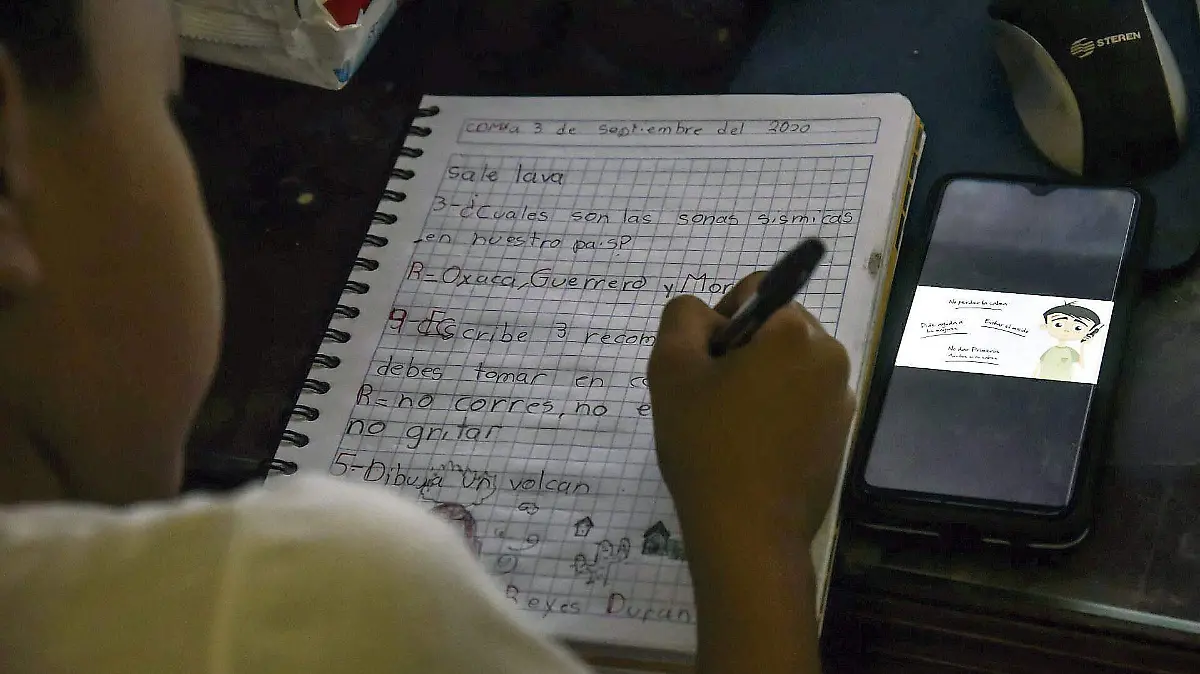 CDMX a 3 de Septiembre del 2020
sale lava
3-¿Cuales son las sonas sismicas
en nuestro pais?
R=Oxaca, Guerrero y Mor
Escribe 3 recom
debes tomar en c
R=no corres, no e
no gritar
5-Dibuja un volcan
Reyes Duran
STEREN
No perder la calma
Pide ayuda a
Evitar el miedo
No dar Primeros